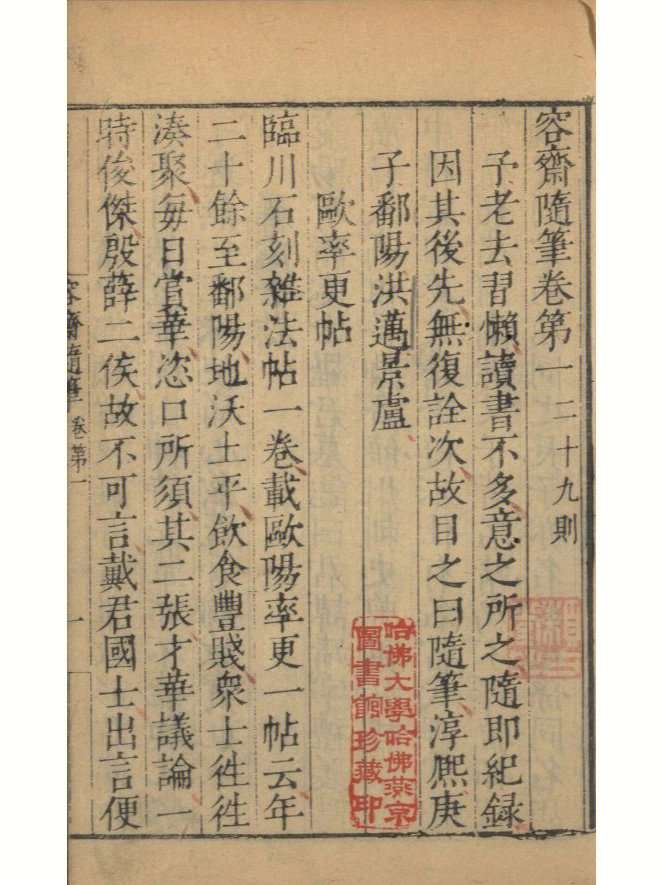 容齋隨筆卷第一 二十九則
予老去習懶讀書不多意之所之隨即紀録
因其後先無復詮次故目之曰隨筆淳熈庚
子鄱陽洪邁景盧
歐率更帖
臨川石刻雜法帖一卷載歐陽率更一帖云年
二十餘至鄱陽地沃土平飲食豐賤衆士徃徃
湊聚每日賞華恣口所須其二張才華議論一
時俊傑殷薛二侯故不可言戴君國士出言便
容齋隨筆 卷第一
一
哈佛大學哈佛燕京
圖書館珍藏印